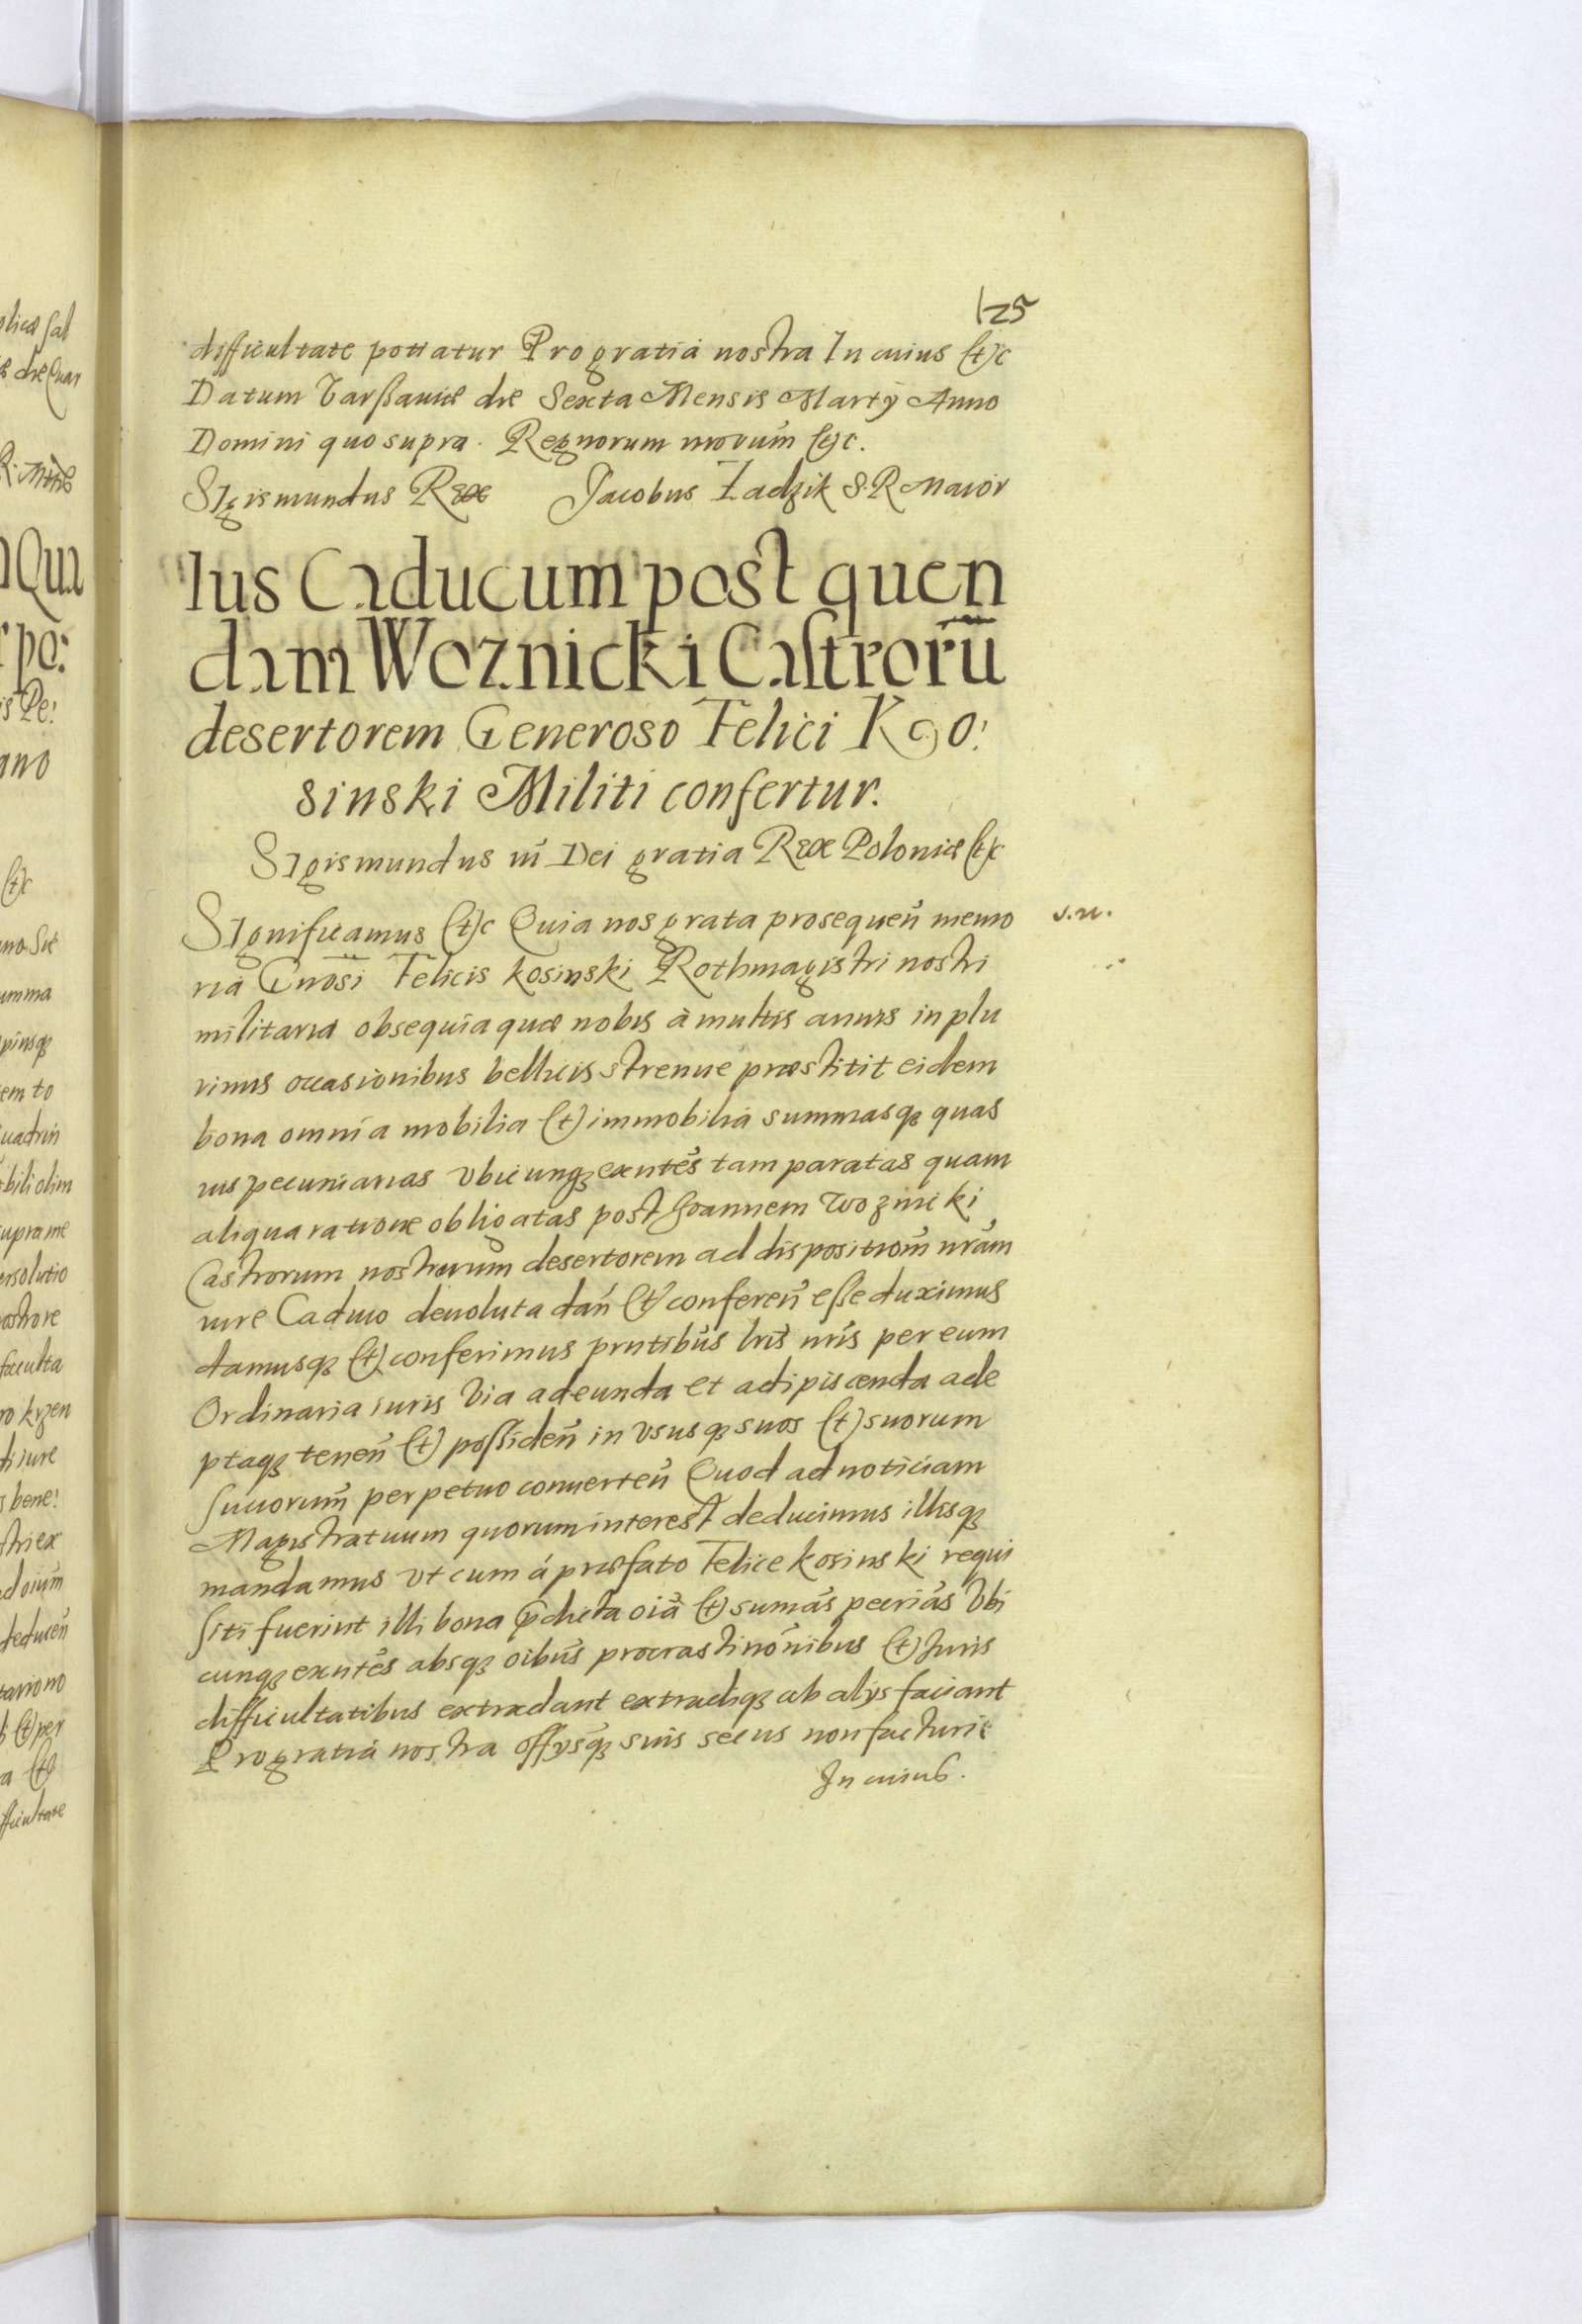 125
difficultate potiatur Pro gratia nostra In cuius &c
Datum Varsaviæ die Sexta Mensis Martÿ Anno
Domini quo supra. Regnorum nrorum &c.
SIgismundus Rex Jacobus Zadzik S. R Maior
Ius Caducum post quen
dam Woznicki Castrorū
desertorem Generoso Felici Ko:
sinski Militi confertur.
SIgismundus iii Dei gratia Rex Poloniæ &c
SIgnificamus &c Quia nos grata prosequeñ memo
ria Gnosi Felicis kosinski Rothmagistri nostri
militaria obsequia quæ nobis à multis annis in plu
rimis occasionibus bellicis strenue præstitit eidem
bona omnia mobilia & immobilia summasq3 quas
uis pecuniarias vbicunq3 exñtes tam paratas quam
aliqua ratione obligatas post Joannem Woznicki
Castrorum nostrorum desertorem ad dispositiom̃ nrãm
iure Caduco deuoluta dañ & confereñ esse duximus
damusq3 & conferimus prñtibus lris nris per eum
Ordinaria iuris Via adeunda et adipiscenda ade
ptaq3 teneñ & possideñ in vsusq3 suos & suorum
Succorum perpetuo conuerteñ Quod ad noticiam
Magistratuum quorum interest deducimus illisq3
mandamus vt cum á præfato Felice kosinski requi
siti fuerint illi bona p̃dicta oiã & sumãs pecriãs Vbi
cunq3 exñtes absq3 oibus procrastinõnibus & Juris
difficultatibus extradant extradiq3 ab alÿs faciant
Pro gratia nostra offÿsq3 suis secus non facturi
In cuius.
s. n.